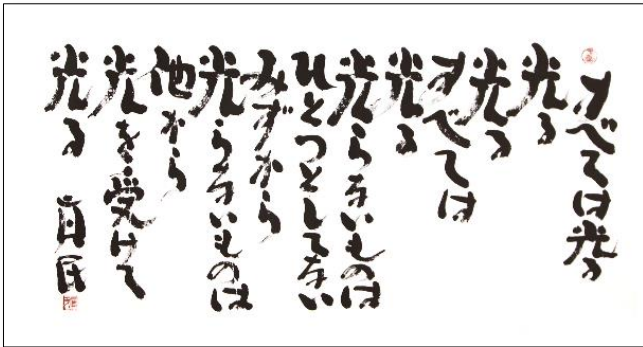 すべては光る
光る
光る
すべては
光る
光らないものは
ひとつとしてない
みずから
光らないものは
他から
光を受けて
光る 真民